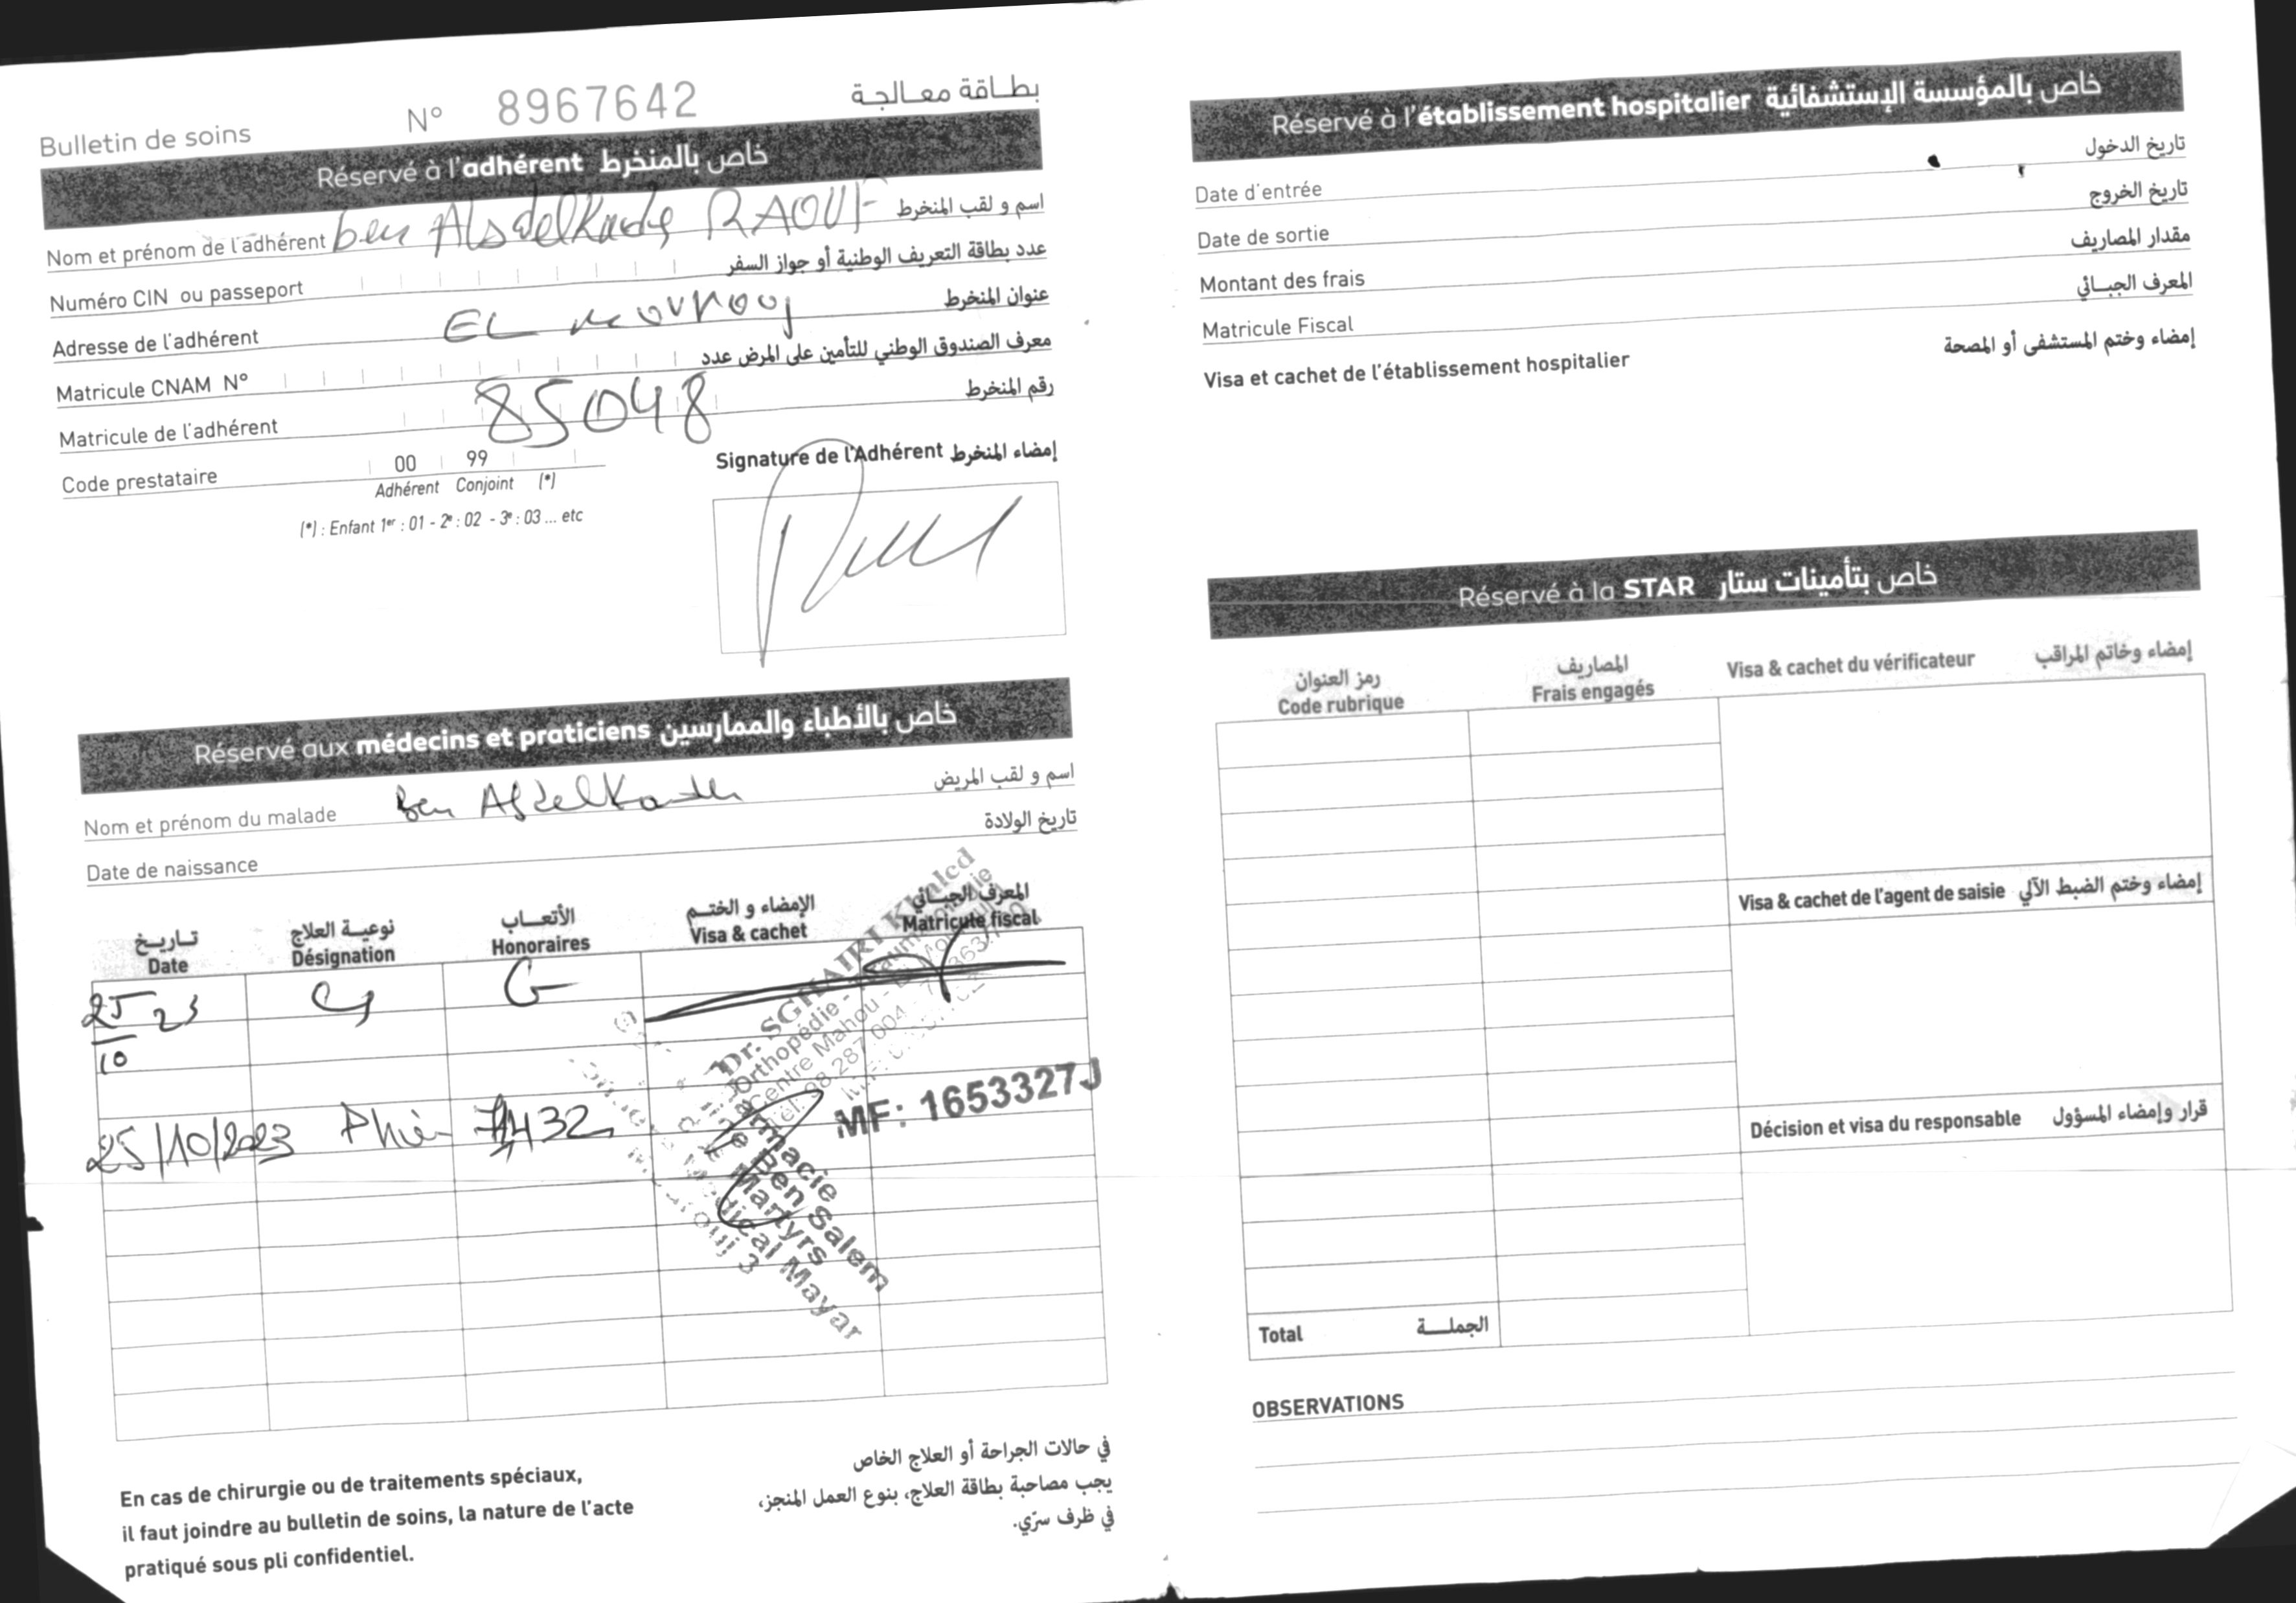 Bulletin de soins
N° 8967642
بطاقة معالجة
Réservé à l'adhérent خاص بالمنخرط
Nom et prénom de l'adhérent ben Abdelkader RAOUF اسم و لقب المنخرط
Numéro CIN ou passeport عدد بطاقة التعريف الوطنية أو جواز السفر
Adresse de l'adhérent EL mourouj عنوان المنخرط
Matricule CNAM N° معرف الصندوق الوطني للتأمين على المرض عدد
Matricule de l'adhérent 85048 رقم المنخرط
Code prestataire 00 99
Adhérent Conjoint (*)
(*) : Enfant 1er : 01 - 2e : 02 - 3e : 03 ... etc
Signature de l'Adhérent إمضاء المنخرط
Réservé aux médecins et praticiens خاص بالأطباء والممارسين
Nom et prénom du malade Ben Abdelkader اسم و لقب المريض
Date de naissance تاريخ الولادة
تاريخ نوعية العلاج الأتعاب الإمضاء و الختم المعرف الجبائي
Date Désignation Honoraires Visa & cachet Matricule fiscal
25 23
10
Dr. SGHAIRI Khaled
Orthopédie -
Centre Mahou -
Tél: 98.287.004
25/10/2023 432
MF: 1653327J
Pharmacie
Ben Salem
Martyrs
Médical Mayar
3
En cas de chirurgie ou de traitements spéciaux,
il faut joindre au bulletin de soins, la nature de l'acte
pratiqué sous pli confidentiel.
في حالات الجراحة أو العلاج الخاص
يجب مصاحبة بطاقة العلاج، بنوع العمل المنجز،
في ظرف سرّي.
Réservé à l'établissement hospitalier خاص بالمؤسسة الإستشفائية
Date d'entrée تاريخ الدخول
Date de sortie تاريخ الخروج
Montant des frais مقدار المصاريف
Matricule Fiscal المعرف الجبائي
Visa et cachet de l'établissement hospitalier إمضاء وختم المستشفى أو المصحة
Réservé à la STAR خاص بتأمينات ستار
رمز العنوان المصاريف
Code rubrique Frais engagés
Visa & cachet du vérificateur إمضاء وخاتم المراقب
Visa & cachet de l'agent de saisie إمضاء وختم الضبط الآلي
Décision et visa du responsable قرار وإمضاء المسؤول
Total الجملة
OBSERVATIONS